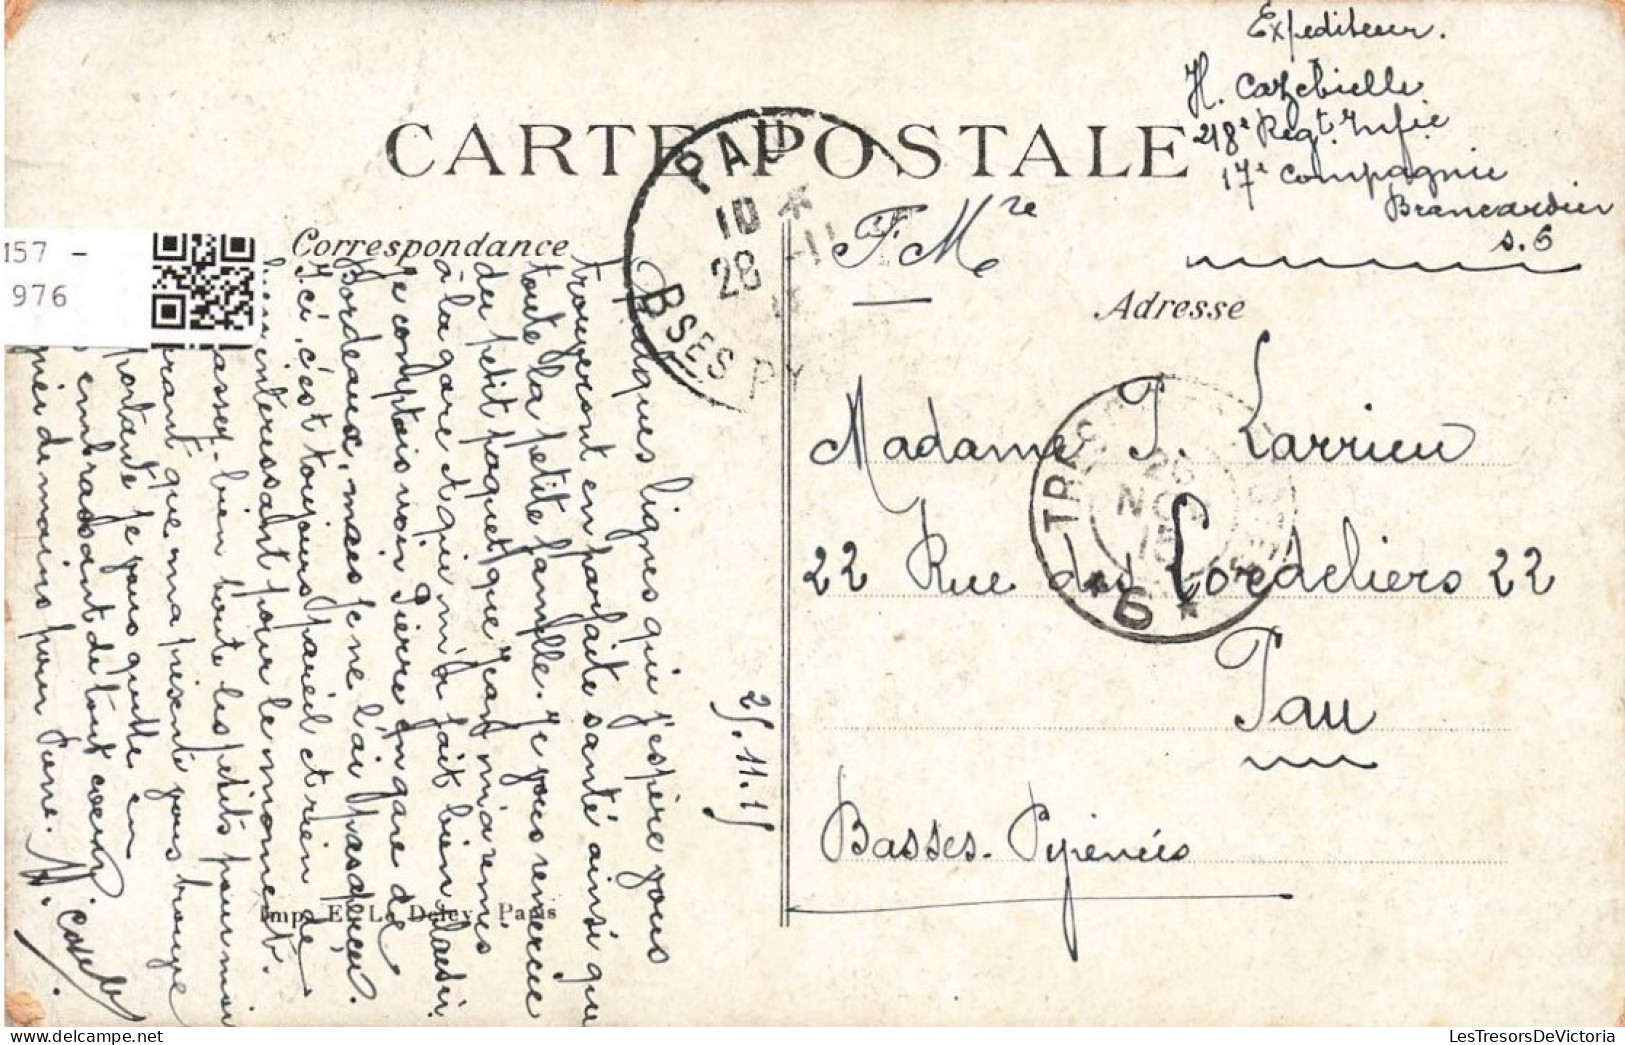 Expediteur.
H. Cazebielle
218e Regt. Infie
17e Compagnie
Brancardier
S. 6
CARTE POSTALE
F. Mre
Correspondance
Adresse
PAU
10 *
28 -11
BSES PY
TRE
26
NOV
15
* 6 *
Madame P. Larrieu
22 Rue des Cordeliers 22
Pau
Basses-Pyrénées
25.11.15
Quelques lignes qui j'espère vous
trouveront en parfaite santé ainsi que
toute la petite famille. Je vous remercie
du petit paquet que Jean m'a remis
à la gare et qui m'a fait bien plaisir.
Je comptais voir Pierre en gare de
Bordeaux, mais je ne l'ai pas aperçu.
Ici, c'est toujours pareil et rien de
intéressant pour le moment.
assez bien toute les petits pour moi
que ma présente vous trouve
portante je vous quitte en
embrassant de tout coeur
de mains pour Pierre.
H. Cazeb
Imp. E. Le Deley, Paris
M57 -
976
LesTresorsDeVictoria